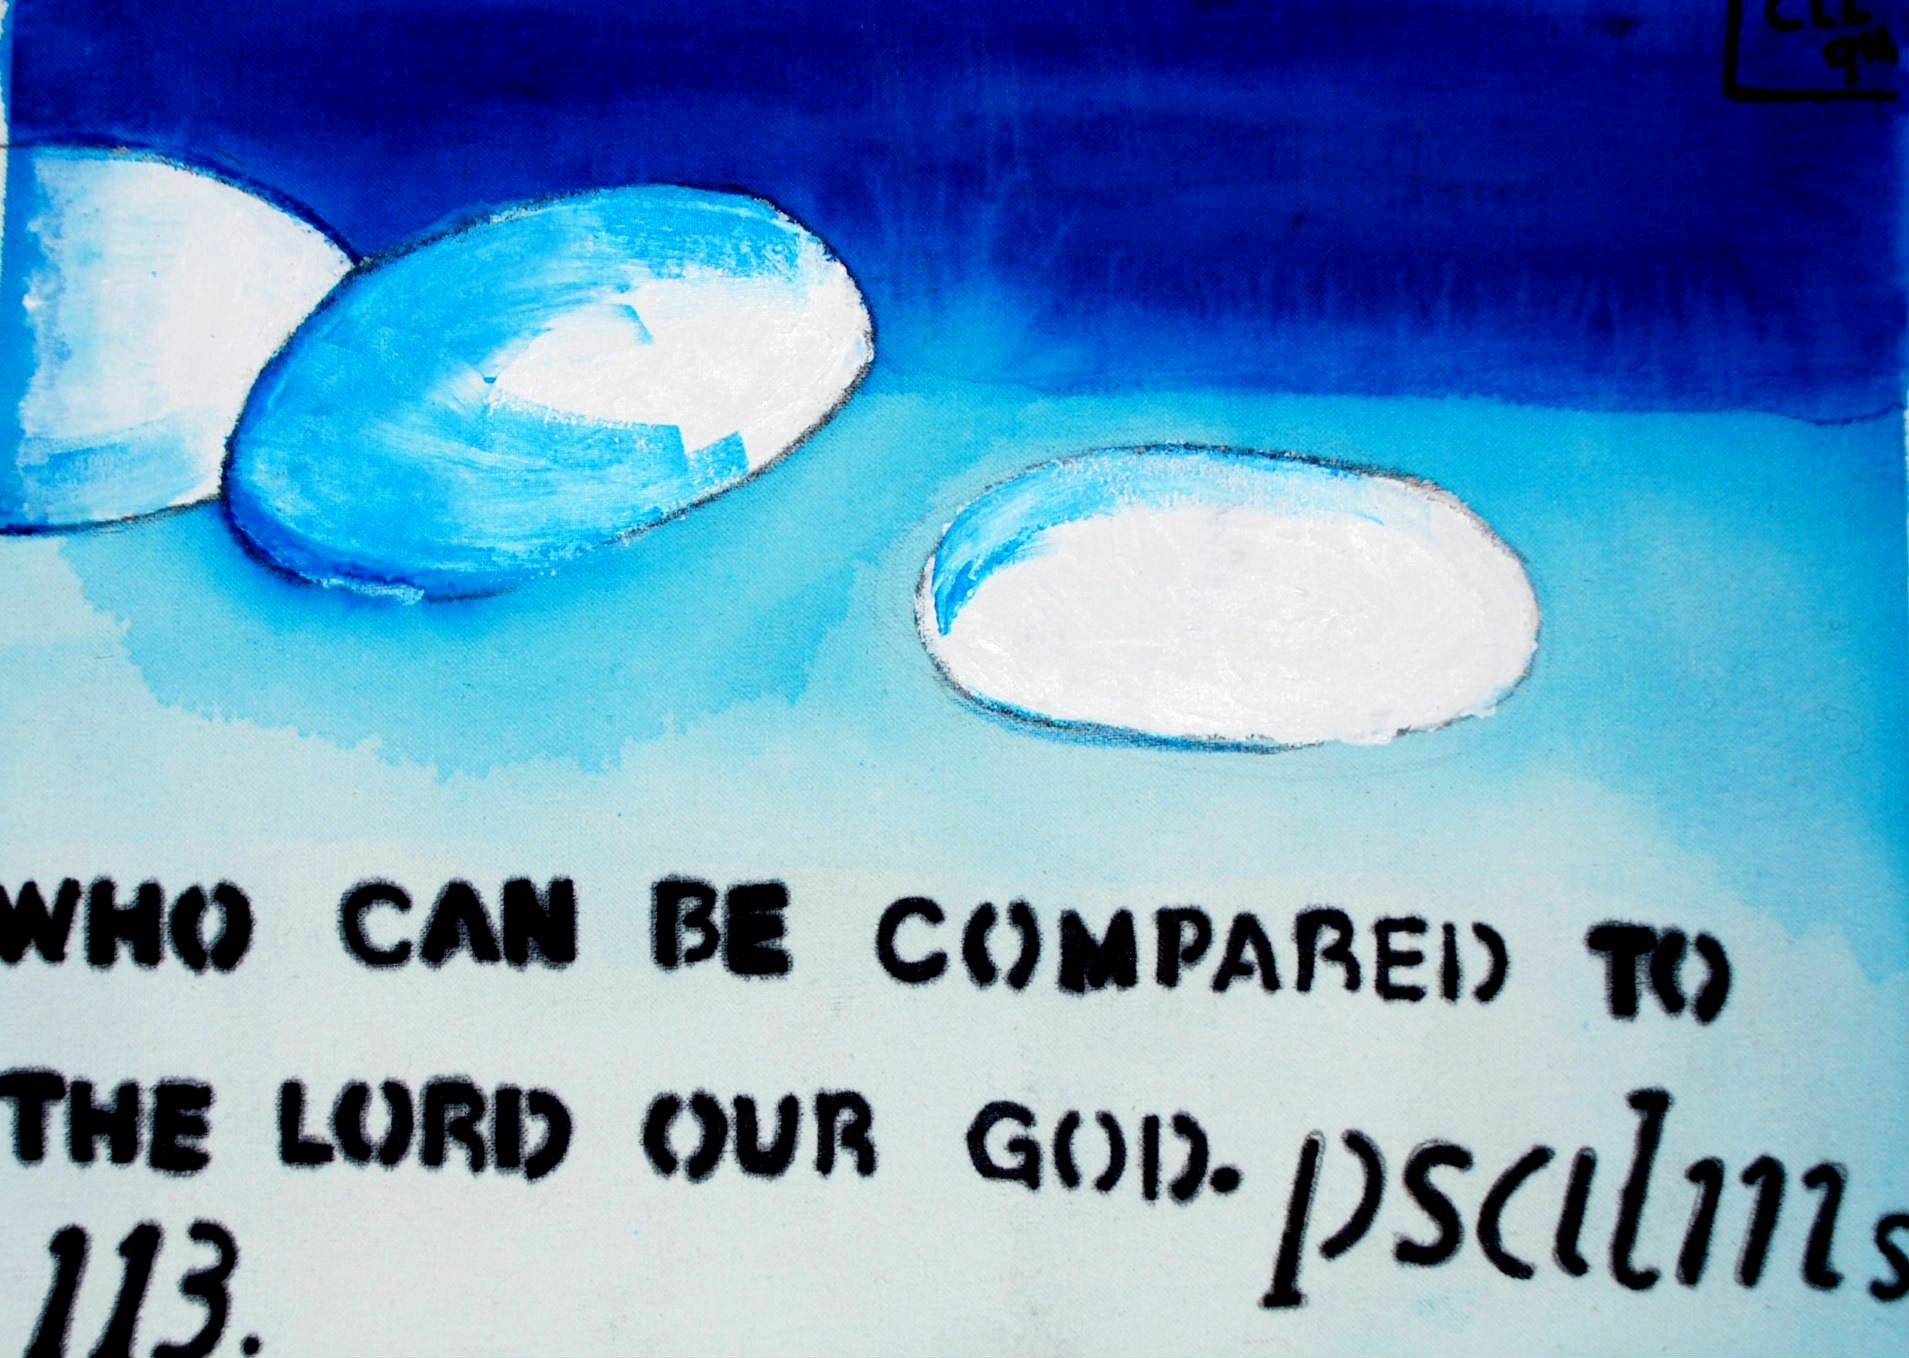 WHO CAN BE COMPARED TO
THE LORD OUR GOD. psalms
113.